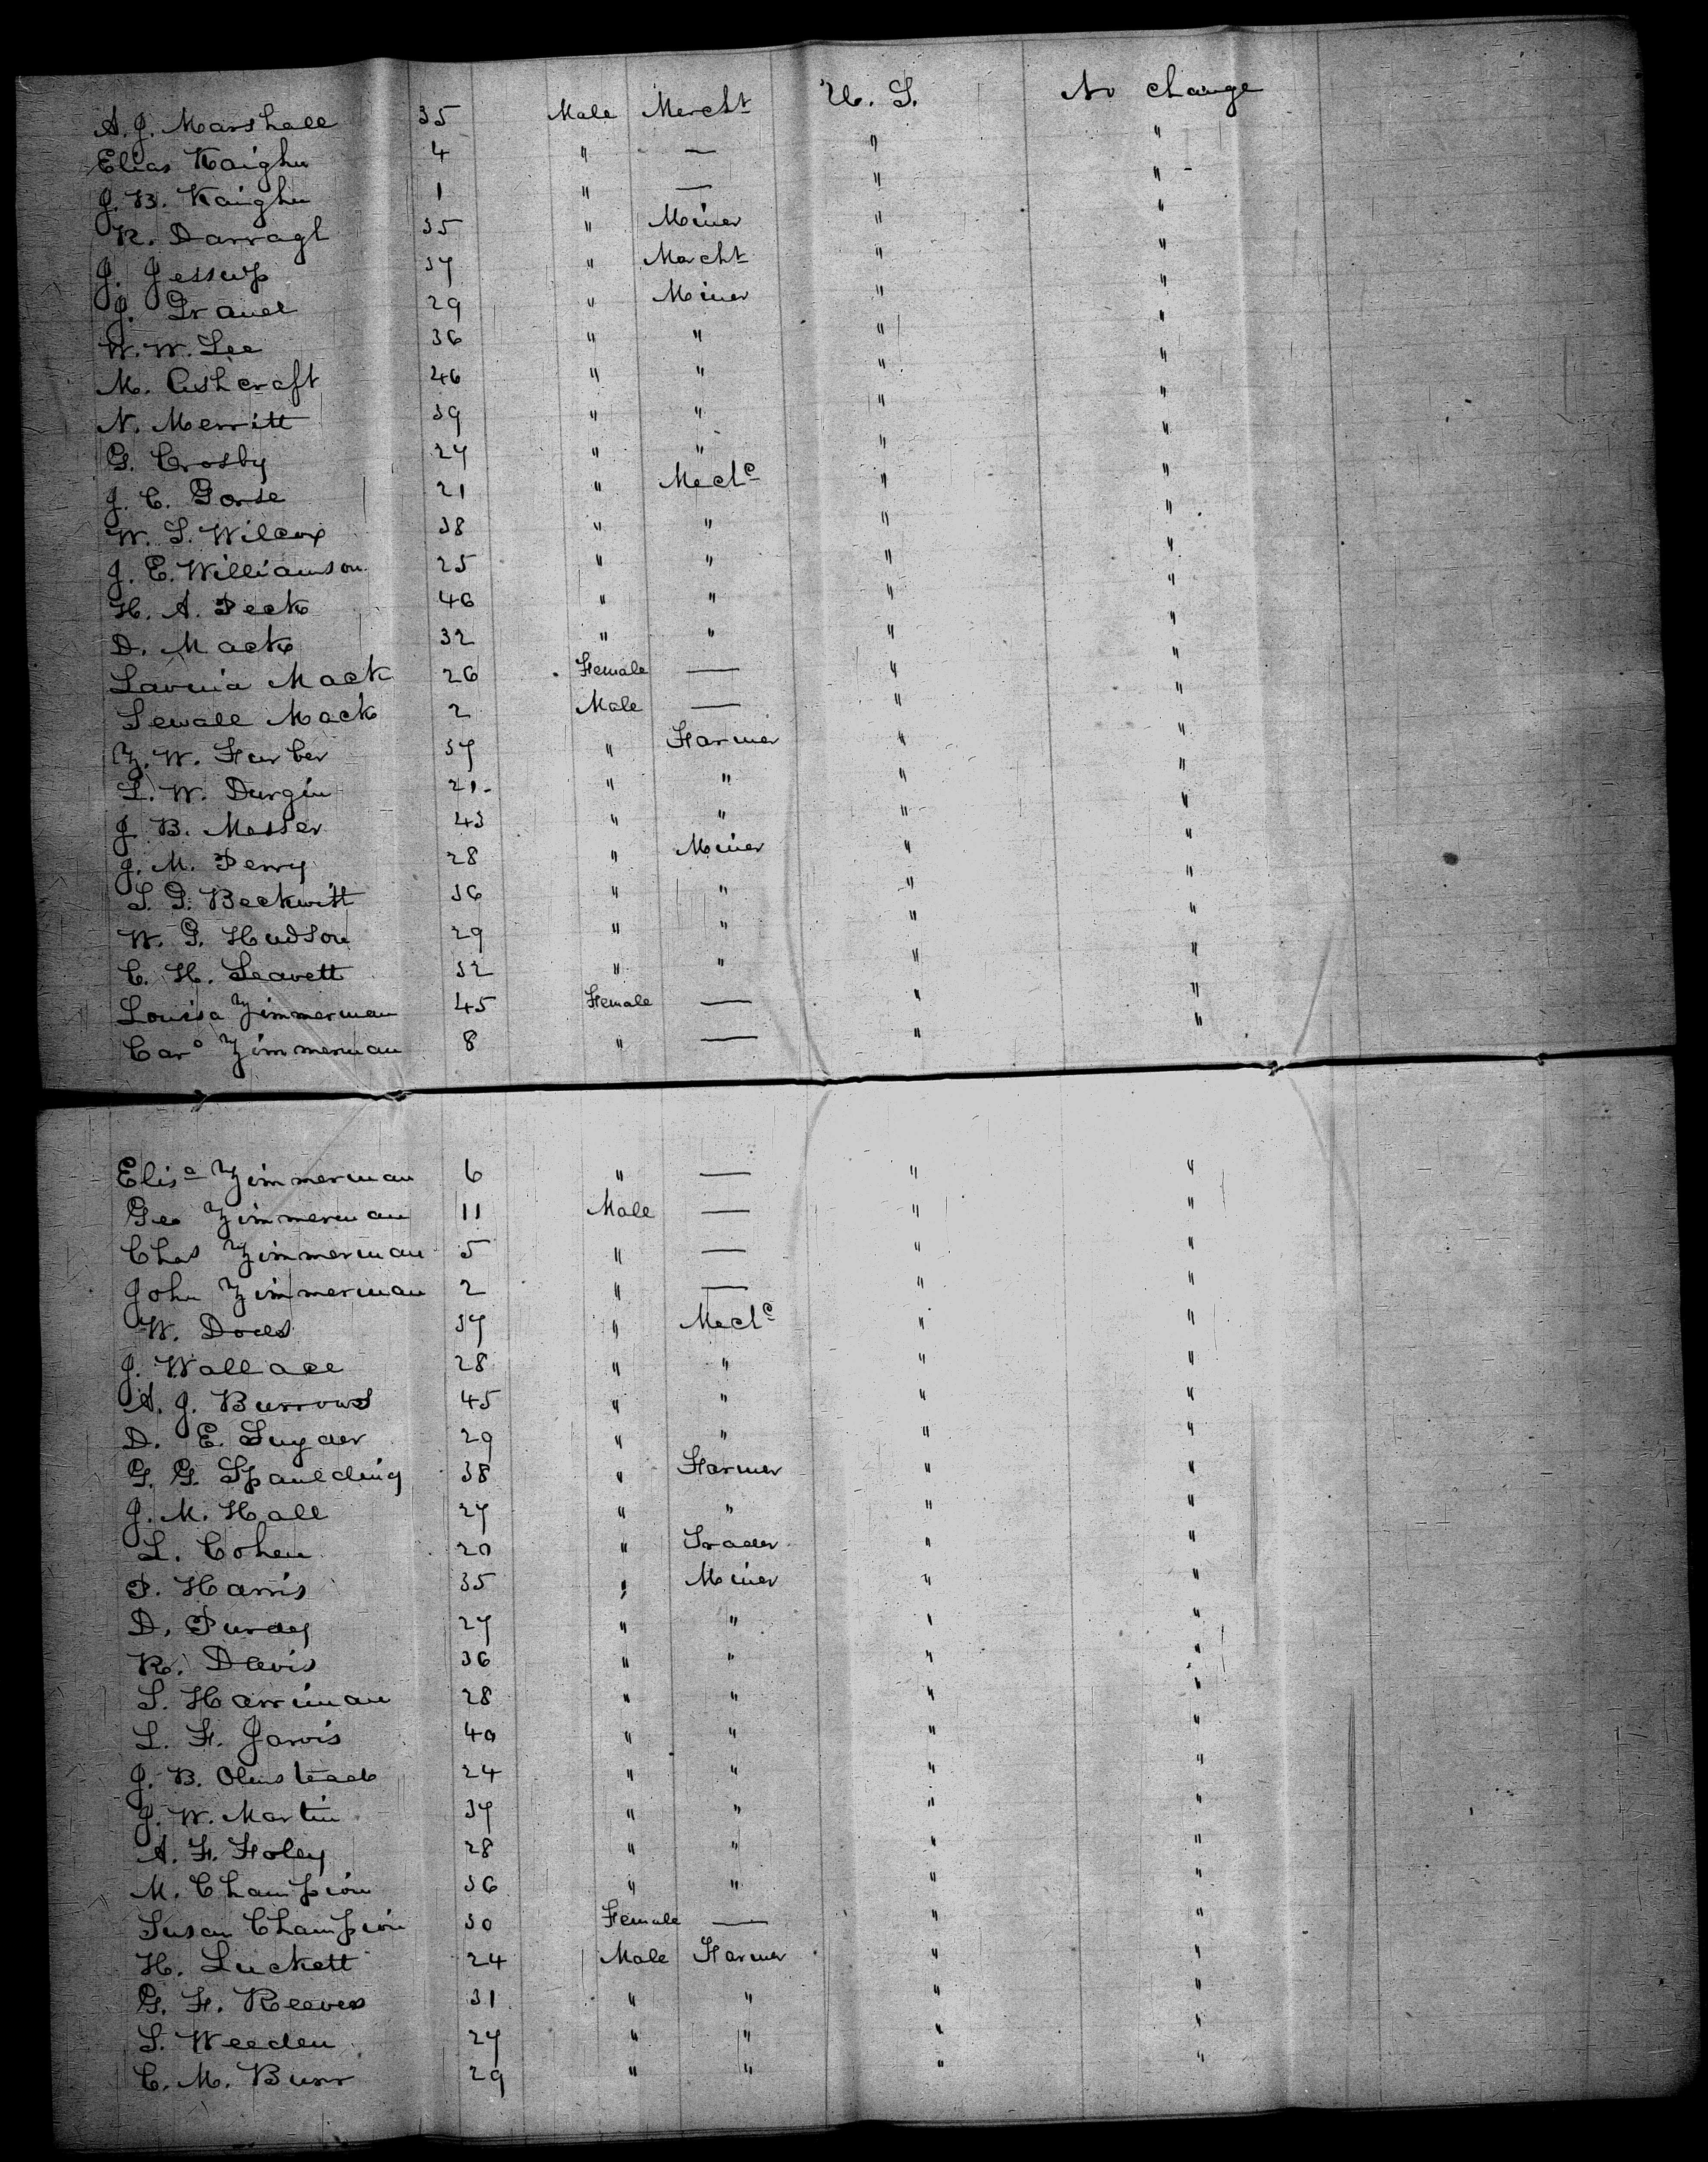 A. J. Marshall 35 Male Mercht U. S. No change
Elias Kaighn 4 " — " "
J. B. Kaighn 1 " — " "
R. Darragh 35 " Miner " "
J. Jessup 37 " Mercht " "
J. 29 " Miner " "
W. W. Lee 36 " " " "
M. Ashcraft 46 " " " "
N. Merritt 39 " " " "
G. Crosby 27 " " " "
J. C. Gorse 21 " Mechc " "
W. S. Wilcox 38 " " " "
J. E. Williamson 25 " " " "
H. A. Peck 46 " " " "
D. Mack 32 " " " "
Lavinia Mack 26 Female — " "
Sewall Mack 2 Male — " "
Z. W. Furber 37 " Farmer " "
L. W. Durgin 21 " " " "
J. B. Messer 43 " " " "
J. M. Perry 28 " Miner " "
S. G. Beckwith 36 " " " "
W. G. Hudson 29 " " " "
C. H. Leavett 32 " " " "
Louisa Zimmerman 45 Female — " "
Caro Zimmerman 8 " — " "
Elisa Zimmerman 6 " — " "
Geo Zimmerman 11 Male — " "
Chas Zimmerman 5 " — " "
John Zimmerman 2 " — " "
W. 37 " Mechc " "
J. Wallace 28 " " " "
A. J. Burrows 45 " " " "
D. E. Snyder 29 " " " "
G. G. Spaulding 38 " Farmer " "
J. M. Hall 27 " " " "
L. Cohen 20 " Trader " "
P. Harris 35 " Miner " "
D. Purdy 27 " " " "
R. Davis 36 " " " "
S. Harriman 28 " " " "
L. F. Jarvis 40 " " " "
J. B. Olmstead 24 " " " "
J. W. Martin 37 " " " "
A. F. Foley 28 " " " "
M. Champion 36 " " " "
Susan Champion 30 Female — " "
H. Luckett 24 Male Farmer " "
G. F. Reeves 31 " " " "
S. Weeden 27 " " " "
C. M. Burr 29 " " " "